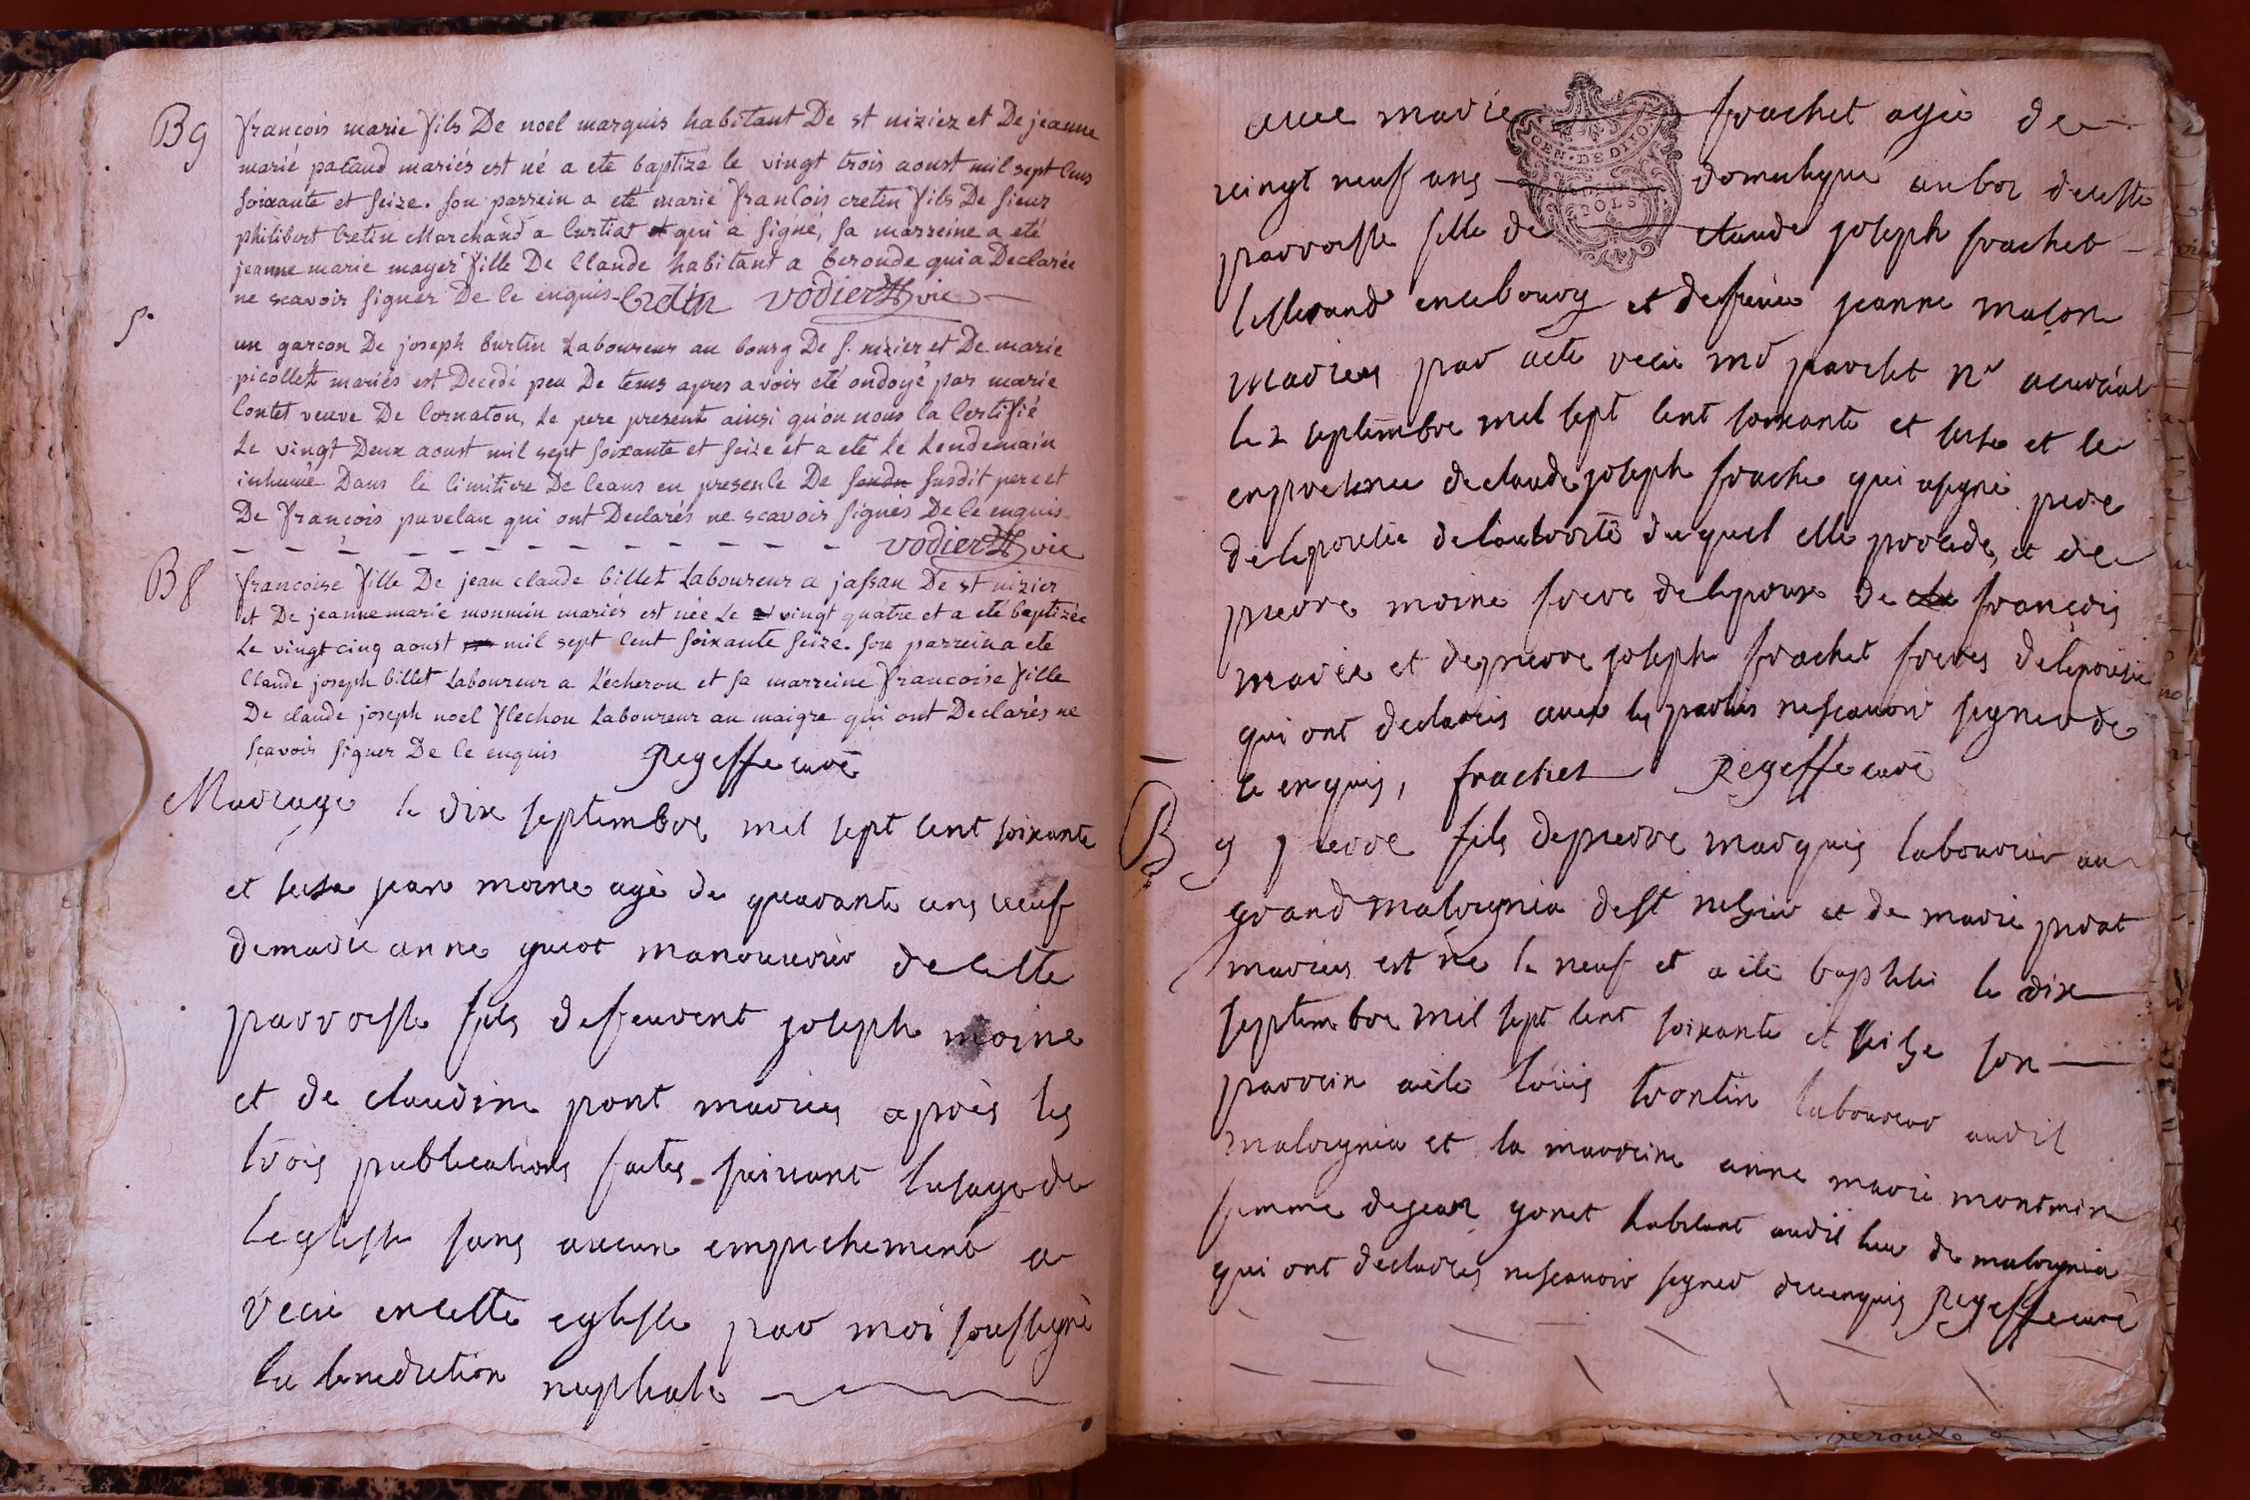 Bg françois marie fils De noel marquis habitant De st niziez et De jeanne
marié pataud mariés est né a eté baptizé le vingt trois aoust mil sept Cens
soixante et seize. son parrein a eté marie françois cretin fils De sieur
philibert Cretin Marchand a Curtiat et qui a signé, sa marreine a eté
jeanne marie mayer fille De Claude habitant a beronde qui a Declarée
ne scavoir signer De ce enquis Cretin vodier vic
S. un garcon De joseph burtin Laboureur au bourg De s. nizier et De marie
picollet mariés est Decedé peu De tems apres avoir eté ondoyé par marie
Contet veuve De Cornaton, Le pere present ainsi qu'on nous la Certifié
Le vingt Deux aoust mil sept soixante et seize et a eté Le Lendemain
inhumé Dans le Cimitiere De Ceans en presence De susdit pere et
De françois pavelan qui ont Declarés ne scavoir signés De ce enquis
vodier vic
Bf francoise fille De jean claude billet Laboureur a jassan De st nizier
et De jeanne marie monmin mariés est née Le vingt quatre et a eté baptizée
Le vingt cinq aoust mil sept Cent soixante seize. son parrein a ete
Claude joseph billet Laboureur a Lécherou et sa marreine francoise fille
De claude joseph noel flechon Laboureur au maigre qui ont Declarés ne
sçavoir signer De ce enquis Regeffe curé
Mariage le dix septembre mil sept cent soixante
et seise jean moine agé de quarante ans veuf
de marie anne guiot manouvrier de cette
parroisse fils de feuvent joseph moine
et de claudine pont mariés après les
trois publications faites suivant lusage de
leglise sans aucun empechement a
recu en cette eglise par moi soussigné
la benediction nuptiale
avec marie frachet agée de
vingt neuf ans domestique au bor de cette
parroisse fille de claude joseph frachet
tisserand en ce bourg et de feue jeanne maçon
mariés par acte recu md parchet nre
le 2 septembre mil sept cent soixante et seise et le
en presence de claude joseph frache qui a signé pere
de lepousée de lautorité duquel elle procede, et de
pierre moine frere de lepoux de françois
marie et de pierre joseph frachet freres de lepousée
qui ont declarés avec les parties ne scavoir signer de
ce enquis, frachet Regeffe curé
B g pierre fils de pierre marquis laboureur au
grand malvignia de st nizier et de marie pirat
mariés est né le neuf et a été baptisé le dix
septembre mil sept cent soixante et seize son
parrein a été louis trontin laboureur audit
malvignia et la marreine anne marie montmin
femme de jean gonet habitant audit lieu de malvignia
qui ont declarés ne scavoir signer de ce enquis Regeffe curé